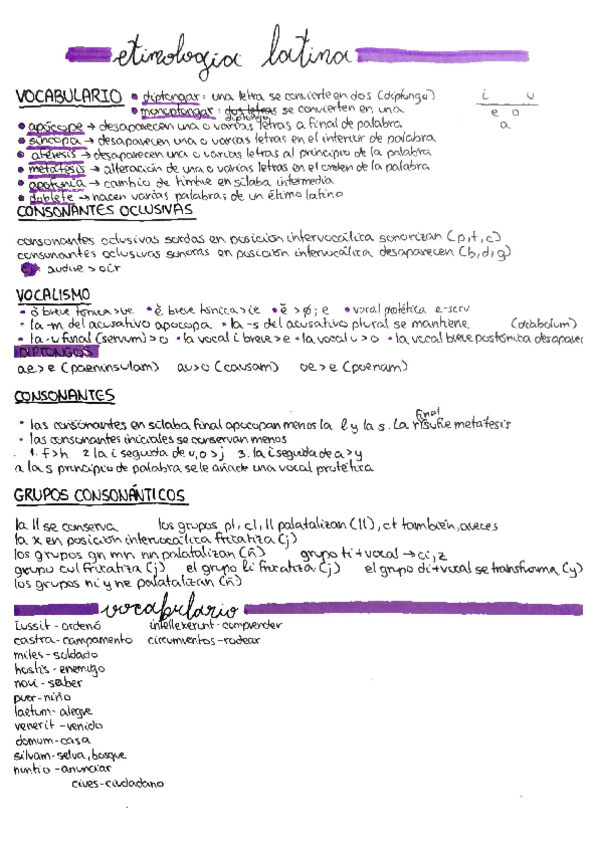 etimologia latina
VOCABULARIO • diptongar: una letra se convierte en dos (diptongo) i u
• monoptongar: dos letras se convierten en una e o
diptongo a
• apócope → desaparecen una o varias letras a final de palabra
• síncopa → desaparecen una o varias letras en el interior de palabra
• aféresis → desaparecen una o varias letras al principio de la palabra
• metátesis → alteración de una o varias letras en el orden de la palabra
• apofonía → cambio de timbre en sílaba intermedia
• doblete → nacen varias palabras de un étimo latino
CONSONANTES OCLUSIVAS
consonantes oclusivas sordas en posición intervocálica sonorizan (p,t,c)
consonantes oclusivas sonoras en posición intervocálica desaparecen (b,d,g)
ej: audire > oír
VOCALISMO
• ŏ breve tónica > ue • ĕ breve tónica > ie • ĕ > ø; e • vocal protética e-scru
• la -m del acusativo apocopa • la -s del acusativo plural se mantiene (otabolum)
• la -u final (servum) > o • la vocal i breve > e • la vocal u > o • la vocal breve postónica desaparec
DIPTONGOS
ae > e (paeninsulam) au > o (causam) oe > e (poenam)
CONSONANTES
• las consonantes en sílaba final apocopan menos la l y la s. La r final sufre metátesis
• las consonantes iniciales se conservan menos
1. f > h 2 la i seguida de u, o > j 3. la i seguida de a > y
a la s principio de palabra se le añade una vocal protética
GRUPOS CONSONÁNTICOS
la ll se conserva los grupos pl, cl, ll palatalizan (ll), ct también, a veces
la x en posición intervocálica fricatiza (j)
los grupos gn mn nn palatalizan (ñ) grupo ti + vocal → ci, z
grupo cul fricatiza (j) el grupo li fricatiza (j) el grupo di + vocal se transforma (y)
los grupos ni y ne palatalizan (ñ)
vocabulario
iussit - ordenó intellexerunt - comprender
castra - campamento circumventos - rodear
miles - soldado
hostis - enemigo
novi - saber
puer - niño
laetum - alegre
venerit - venido
domum - casa
silvam - selva, bosque
nuntio - anunciar
cives - ciudadano